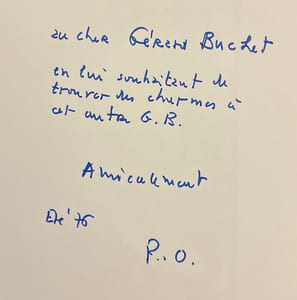 au cher Gérard Buchet
en lui souhaitant de
trouver des charmes à
cet autre G. B.
Amicalement
Eté '76
P. O.